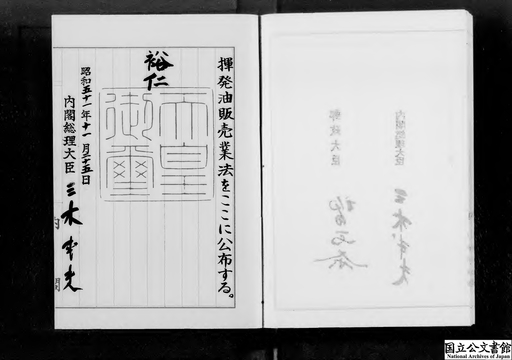 揮発油販売業法をここに公布する。
裕仁
天皇御璽
昭和五十一年十一月二十五日
内閣総理大臣 三木武夫
内閣
内閣総理大臣 三木武夫
郵政大臣
国立公文書館
National Archives of Japan